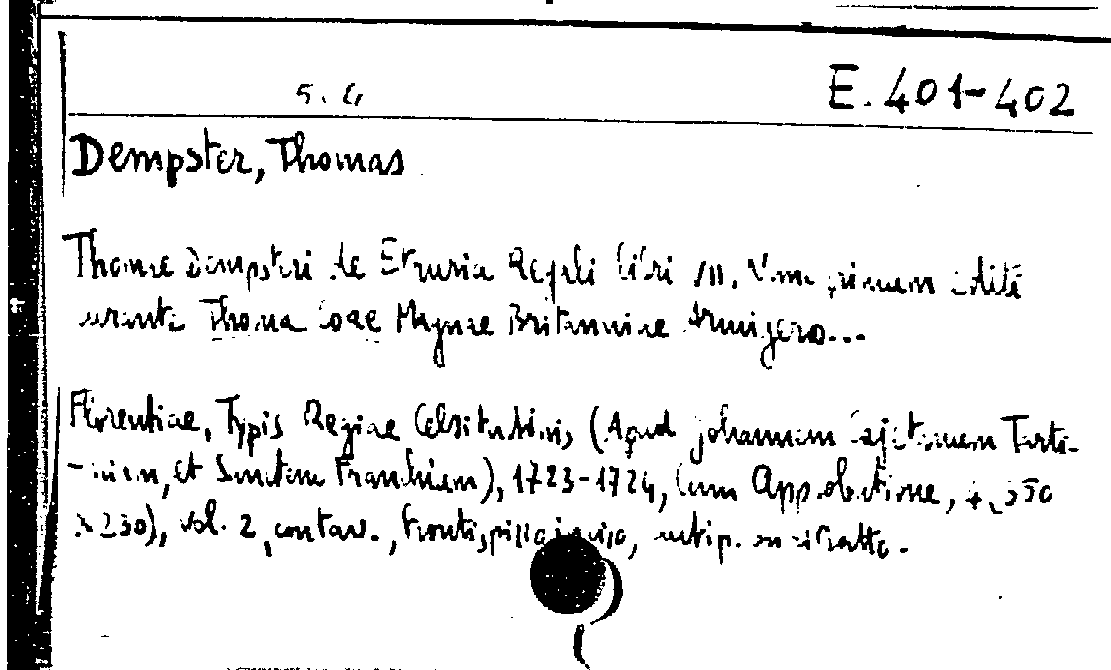 E. 401-402
Dempster, Thomas
Thomae Dempsteri de Etruria Regali libri VII. Nunc primum editi
curante Thoma Coke Magnae Britanniae Armigero...
Florentiae, Typis Regiae Celsitudinis, (Apud Johannem Cajetanum Tarti-
-nium, et Sanctem Franchium), 1723-1724, (cum Approbatione, 4, 350
x 230), vol. 2, con tav., frontispizio inciso, antip. con ritratto.